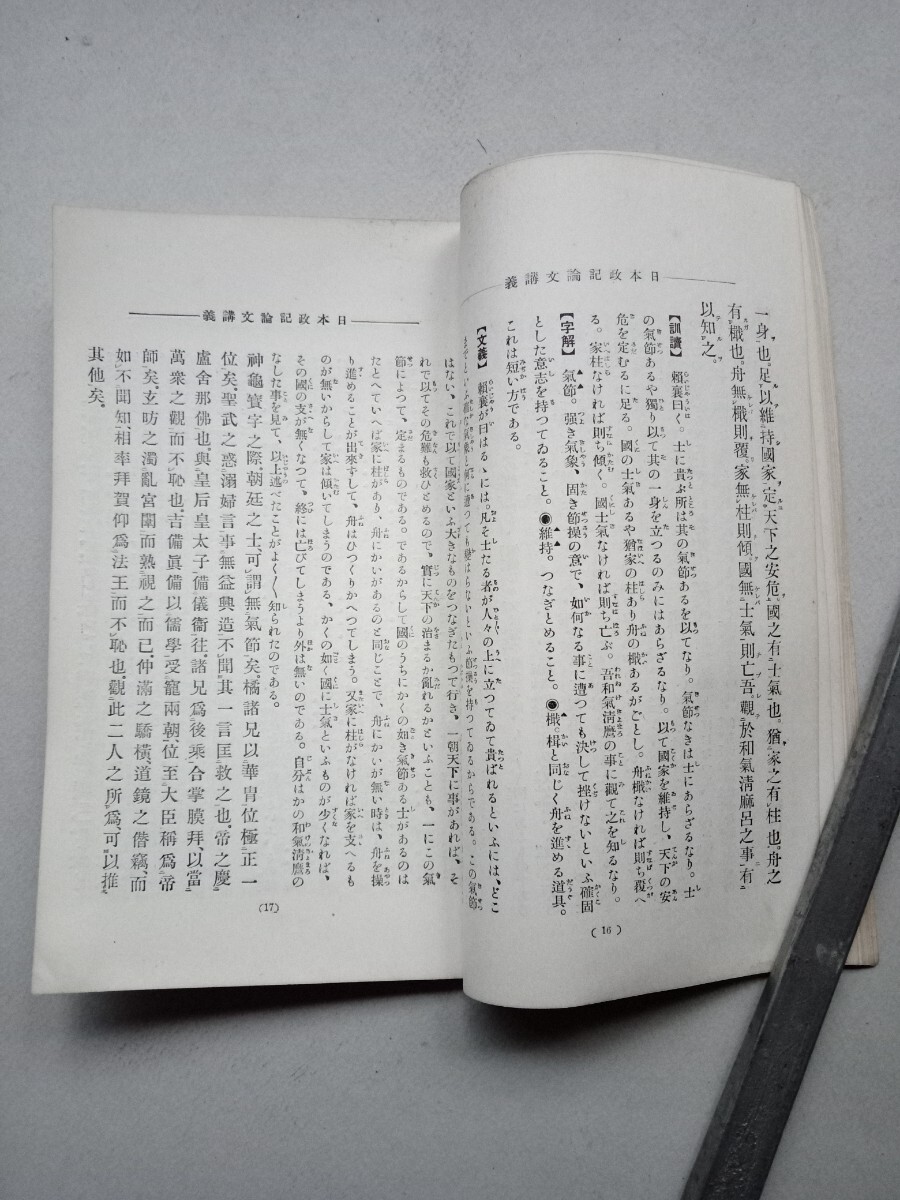 日本政記論文講義
一身也。足以維持國家、定天下之安危。國之有士氣也。猶家之有柱也。舟之
有檝也。舟無檝則覆。家無柱則傾。國無士氣則亡。吾觀於和氣清麻呂之事、有
以知之。
【訓讀】 頼襄曰く。士に貴ぶ所は其の氣節あるを以てなり。氣節なきは士にあらざるなり。士
の氣節あるや獨り以て其の一身を立つるのみにはあらざるなり。以て國家を維持し、天下の安
危を定むるに足る。國の士氣あるや猶家の柱あり舟の檝あるがごとし。舟檝なければ則ち覆へ
る。家柱なければ則ち傾く。國士氣なければ則ち亡ぶ。吾和氣清麿の事に觀て之を知るなり。
【字解】 氣節。强き氣象、固き節操の意で、如何なる事に遭つても決して挫けないといふ確固
とした意志を持つてゐること。◉維持。つなぎとめること。◉檝。楫と同じく舟を進める道具。
これは短い方である。
【文義】 頼襄が曰はるゝには。凡そ士たる者が人々の上に立つてゐて貴ばれるといふには、どこ
までといふ確な氣象と に遭つても變はらないといふ節操を持つてゐるからである。この氣節
(16)
日本政記論文講義
はない、これで以て國家といふ大きなものをつなぎたもつて行き、一朝天下に事があれば、そ
れで以てその危難も救ひとめるので、實に天下の治まるか亂れるかといふことも、一にこの氣
節によつて、定まるものである。であるからして國のうちにかくの如き氣節ある士があるのは
たとへていへば家に柱があり、舟にかいがあるのと同じことで、舟にかいが無い時は、舟を操
り進めることが出來ずして、舟はひつくりかへつてしまう。又家に柱がなければ家を支へるも
のが無いからして家は傾いてしまうのである、かくの如く國に士氣といふものが少くなれば、
その國の支が無くなつて、終には亡びてしまうより外は無いのである。自分はかの和氣清麿の
なした事を見て、以上述べたことがよく〱知られたのである。
神龜寶字之際、朝廷之士、可謂無氣節矣。橘諸兄以華冑位極正一
位矣。聖武之惑溺婦言、事無益興造、不聞其一言匡救之也。帝之慶
盧舍那佛也。與皇后皇太子備儀衞往、諸兄爲後乘、合掌膜拜、以當
萬衆之觀而不恥也。吉備眞備以儒學受寵兩朝、位至大臣稱爲帝
師矣。玄昉之濁亂宮闈而熟視之而已、仲滿之驕橫、道鏡之僭竊、而
如不聞知、相率拜賀仰爲法王而不恥也。觀此二人之所爲、可以推
其他矣。
(17)